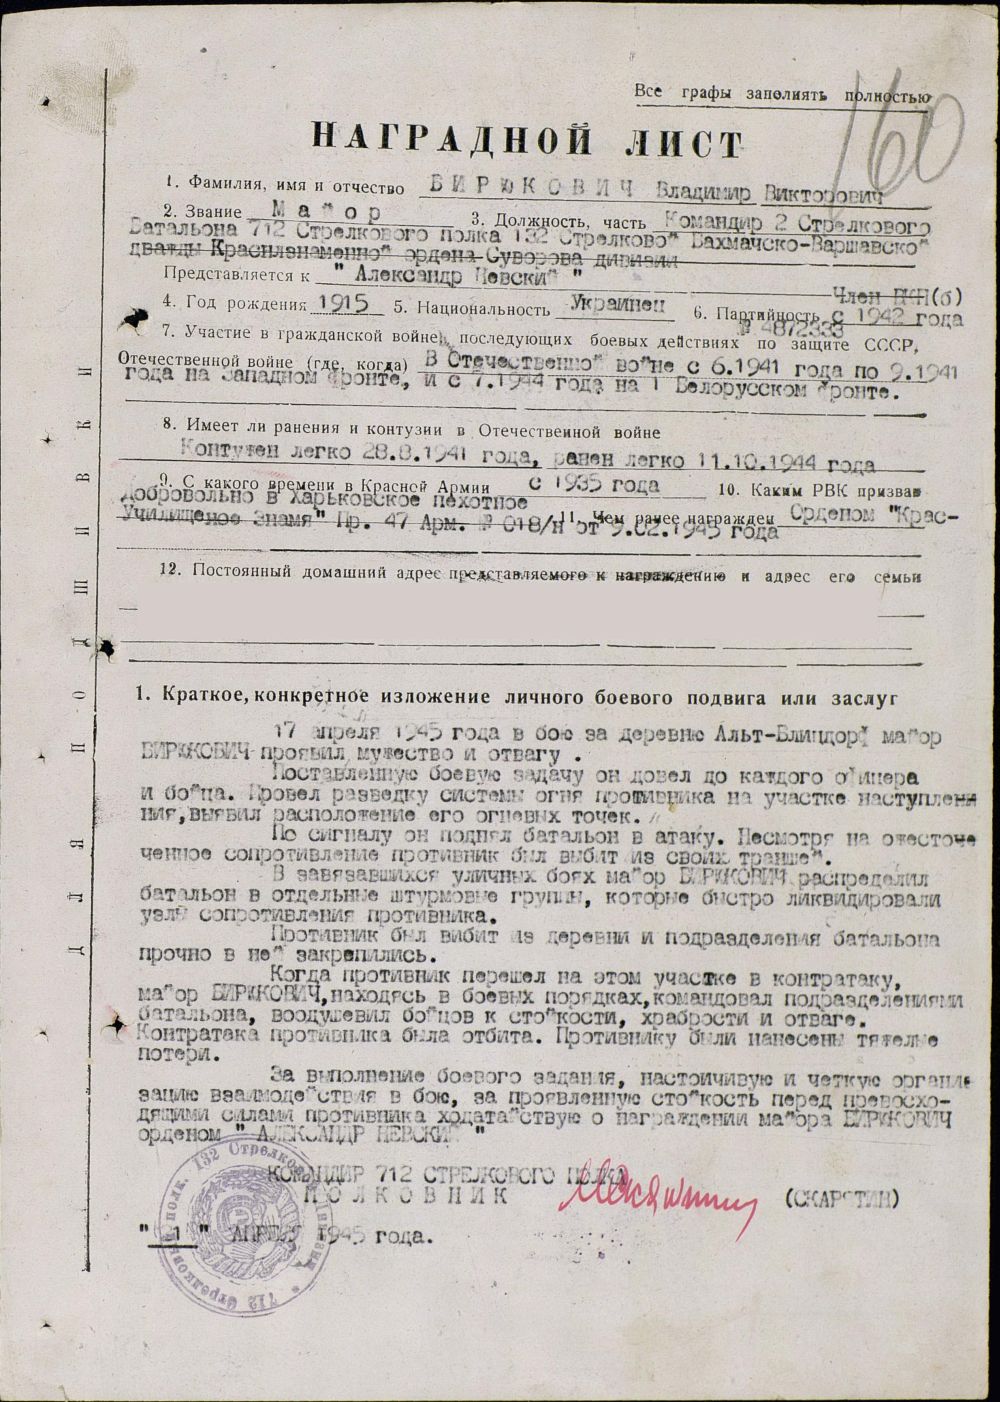 Все графы заполнять полностью
160
НАГРАДНОЙ ЛИСТ
1. Фамилия, имя и отчество БИРЮКОВИЧ Владимир Викторович
2. Звание Майор 3. Должность, часть Командир 2 Стрелкового
Батальона 712 Стрелкового полка 132 Стрелковой Бахмачско-Варшавской
дважды Краснознаменной ордена Суворова дивизии
Представляется к "Александр Невский"
Член ВКП(б)
4. Год рождения 1915 5. Национальность Украинец 6. Партийность с 1942 года
№ 4872333
7. Участие в гражданской войне, последующих боевых действиях по защите СССР,
Отечественной войне (где, когда) В Отечественной войне с 6.1941 года по 9.1941
года на Западном фронте, и с 7.1944 года на 1 Белорусском фронте.
8. Имеет ли ранения и контузии в Отечественной войне
Контужен легко 28.8.1941 года, ранен легко 11.10.1944 года
9. С какого времени в Красной Армии с 1935 года 10. Каким РВК призван
добровольно в Харьковское пехотное
Училище 11. Чем ранее награжден Орденом "Крас-
ное Знамя" Пр. 47 Арм. № 018/н от 9.02.1945 года
12. Постоянный домашний адрес представляемого к награждению и адрес его семьи
ДЛЯ ПОДШИВКИ
1. Краткое, конкретное изложение личного боевого подвига или заслуг
17 апреля 1945 года в бою за деревню Альт-Блиндорф майор
БИРЮКОВИЧ проявил мужество и отвагу.
Поставленную боевую задачу он довел до каждого офицера
и бойца. Провел разведку системы огня противника на участке наступлени
ния, выявил расположение его огневых точек.
По сигналу он поднял батальон в атаку. Несмотря на ожесточе
ченное сопротивление противник был выбит из своих траншей.
В завязавшихся уличных боях майор БИРЮКОВИЧ распределил
батальон в отдельные штурмовые группы, которые быстро ликвидировали
узлы сопротивления противника.
Противник был выбит из деревни и подразделения батальона
прочно в ней закрепились.
Когда противник перешел на этом участке в контратаку,
майор БИРЮКОВИЧ, находясь в боевых порядках, командовал подразделениями
батальона, воодушевил бойцов к стойкости, храбрости и отваге.
Контратака противника была отбита. Противнику были нанесены тяжелые
потери.
За выполнение боевого задания, настоичивую и четкую органи
зацию взаимодействия в бою, за проявленную стойкость перед превосхо-
дящими силами противника ходатайствую о награждении майора БИРЮКОВИЧ
орденом "АЛЕКСАНДР НЕВСКИЙ"
КОМАНДИР 712 СТРЕЛКОВОГО ПОЛКА
ПОЛКОВНИК (СКАРЯТИН)
АПРЕЛЯ 1945 года.
712 Стрелковый полк. 132 Стрелковой Дивизии